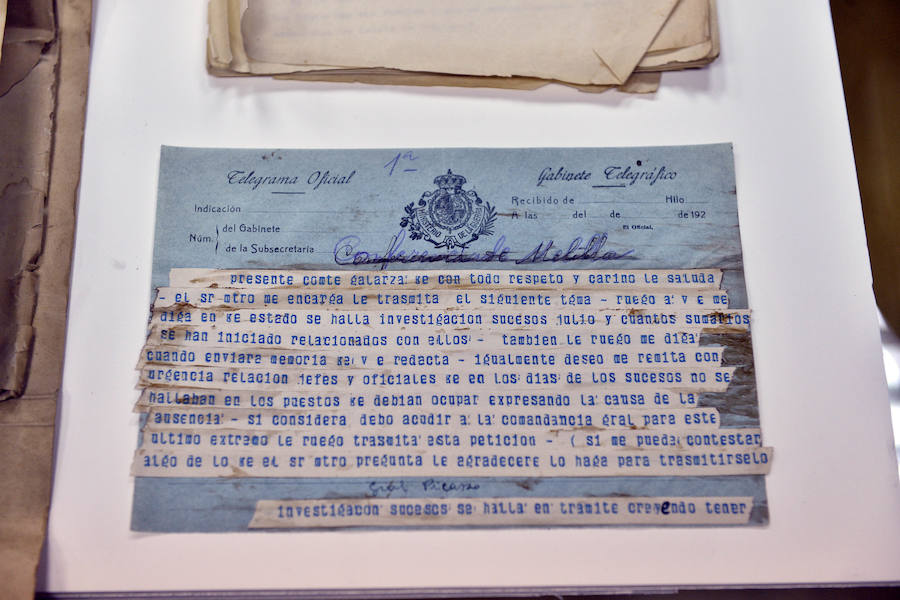 1ª
Telegrama Oficial
Gabinete Telegráfico
Indicación
Recibido de Hilo
A las del de de 192
El Oficial,
Núm. del Gabinete
de la Subsecretaria
MINISTERIO DE LA GUERRA
Conferencia de Melilla
presente comte galarza ke con todo respeto y carino le saluda
- el sr mtro me encarga le trasmita el siguiente tema - ruego a v e me
diga en ke estado se halla investigacion sucesos julio y cuantos sumarios
se han iniciado relacionados con ellos - tambien le ruego me diga
cuando enviara memoria ke v e redacta - igualmente deseo me remita con
urgencia relacion jefes y oficiales ke en los dias de los sucesos no se
hallaban en los puestos ke debian ocupar expresando la causa de la
ausencia - si considera debo acudir a la comandancia gral para este
ultimo extremo le ruego trasmita esta peticion - ( si me pueda contestar
algo de lo ke el sr mtro pregunta le agradecere lo haga para trasmitirselo
Gral Picasso
investigacion sucesos se halla en tramite creyendo tener